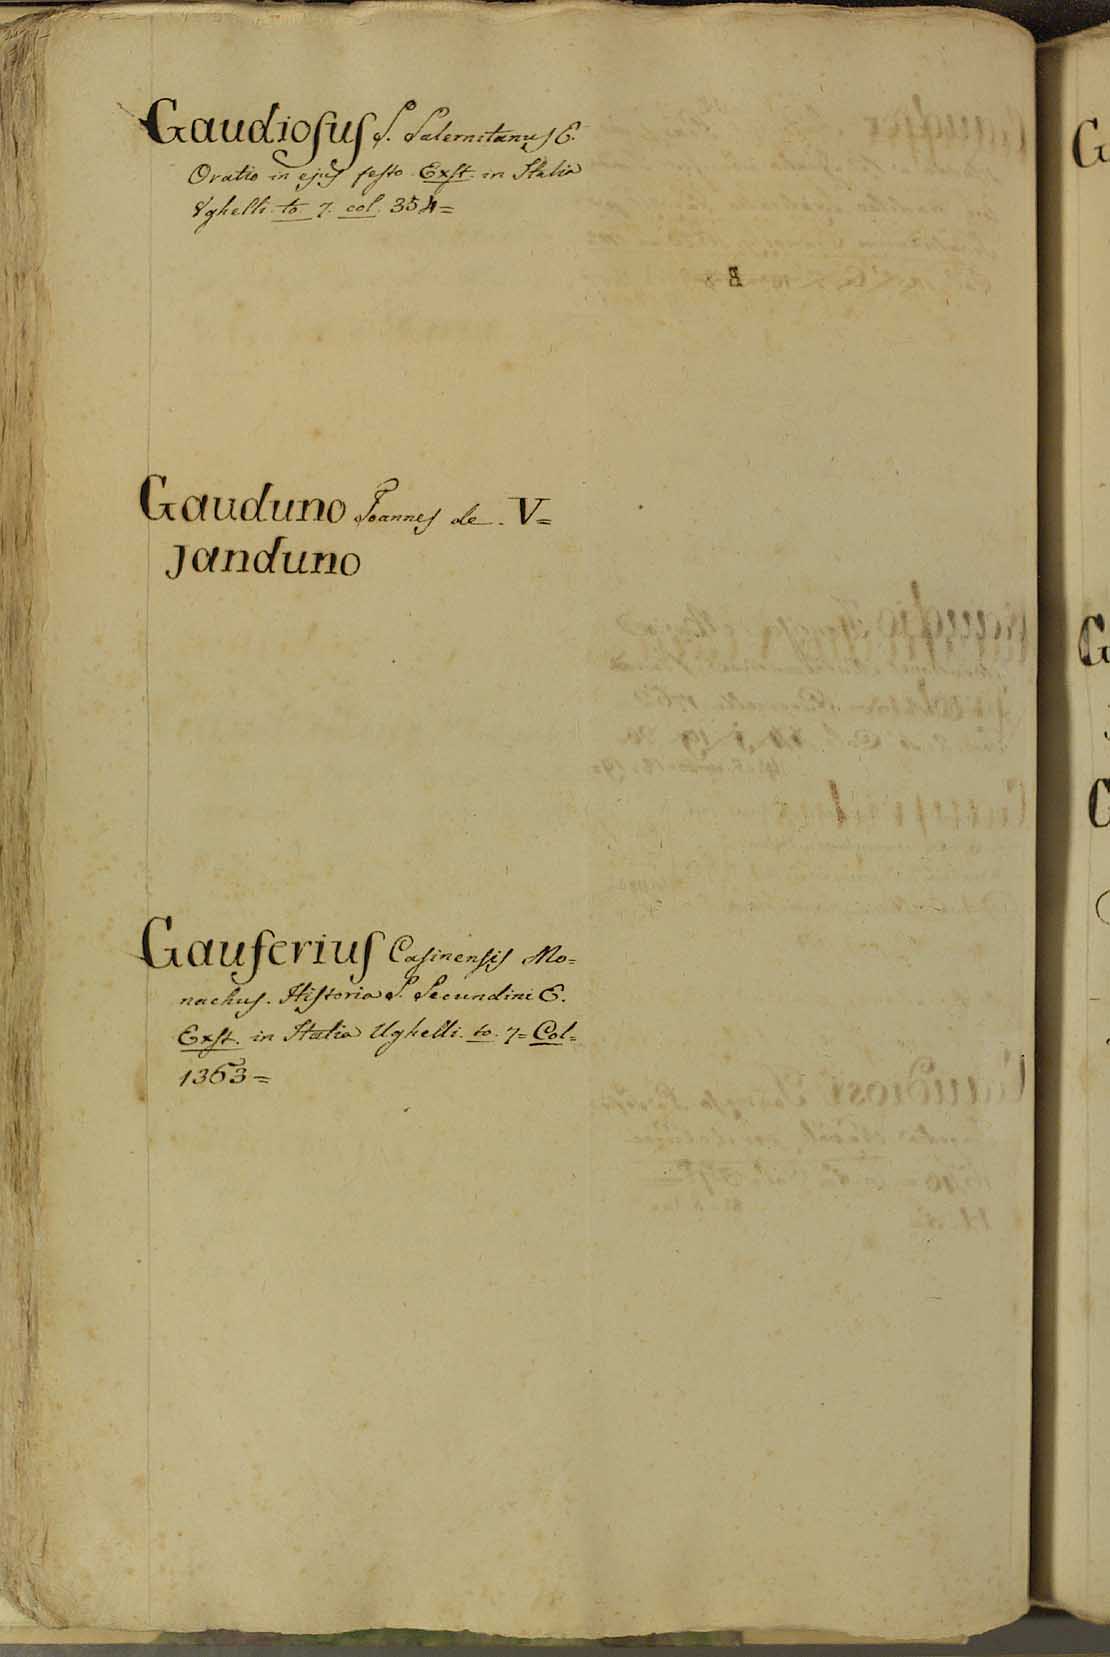 Gaudiosus S. Salernitanus E.
Oratio in ejus festo. Exst. in Italia
Vghelli. to. 7. col. 354=
Gauduno Joannes de. V=
Janduno
Gauferius Casinensis Mo=
nachus. Historia S. Secundini E.
Exst. in Italia Ughelli. to. 7= Col=
1363=
G
G